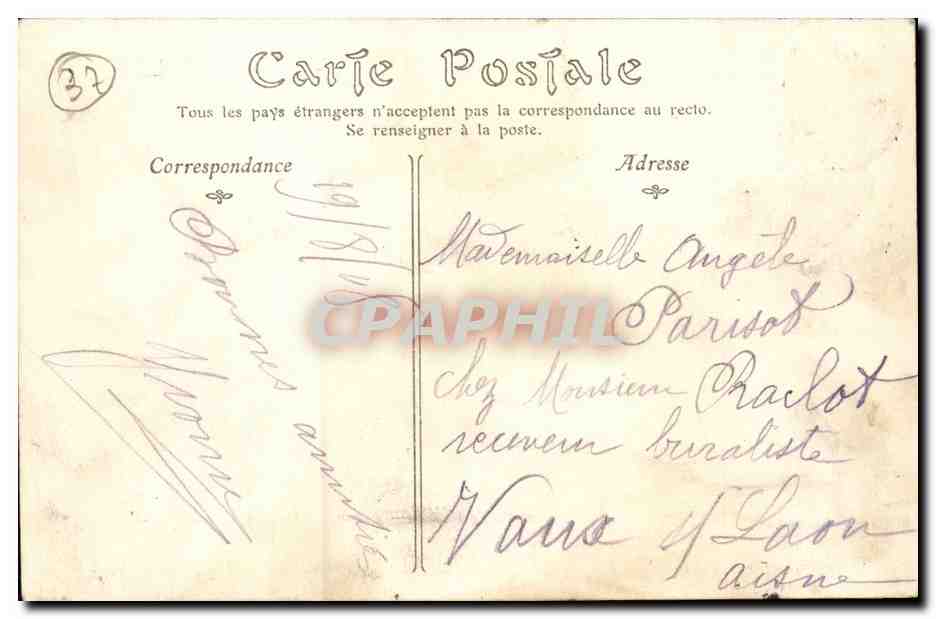 37
Carte Postale
Tous les pays étrangers n'acceptent pas la correspondance au recto.
Se renseigner à la poste.
Correspondance
19/8/08
Bonnes amitiés
Yvonne
Adresse
Mademoiselle Angèle
Parisot
chez Monsieur Raclot
receveur buraliste
Vaux s/ Laon
aisne
CPAPHIL